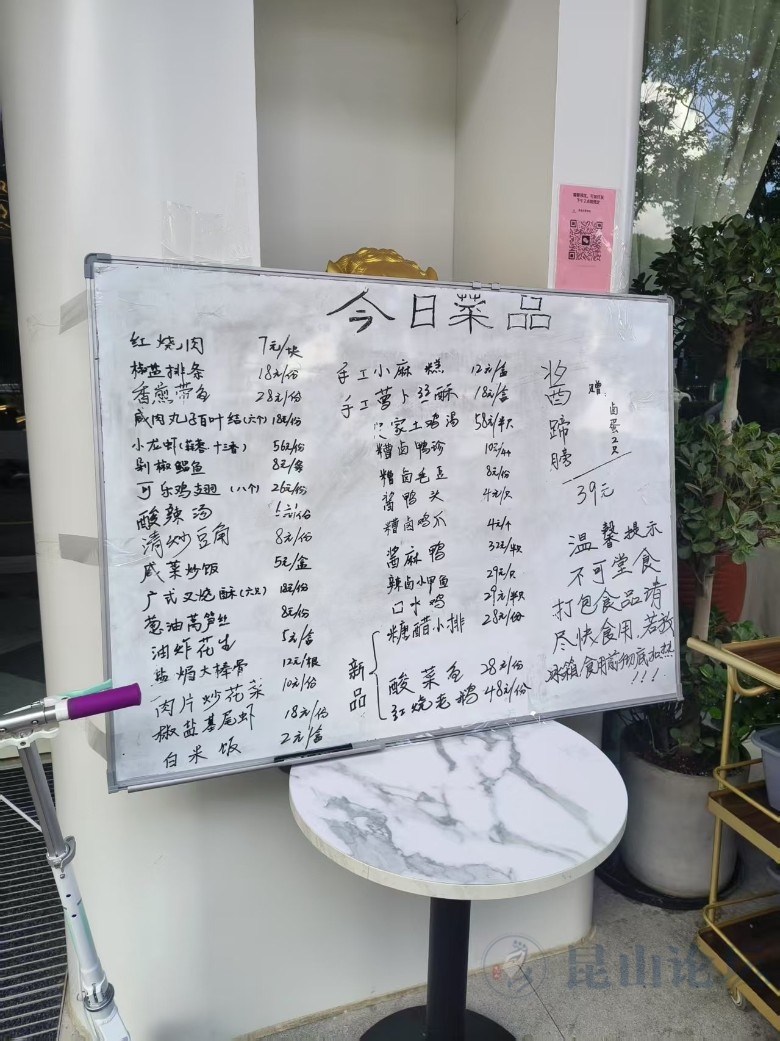 今日菜品
红烧肉 7元/块
椒盐排条 18元/份
香煎带鱼 28元/份
咸肉丸子百叶结(六个) 18元/份
小龙虾(蒜卷.十三香) 56元/份
剁椒鲳鱼 8元/条
可乐鸡翅(八个) 26元/份
酸辣汤 元/份
清炒豆角 8元/份
咸菜炒饭 5元/盒
广式叉烧酥(六只) 18元/份
葱油莴笋丝 8元/份
油炸花生 5元/盒
盐焗大棒骨 12元/根
肉片炒花菜 10元/份
椒盐基尾虾 18元/份
白米饭 2元/盒
手工小麻糕 12元/盒
手工萝卜丝酥 18元/盒
家土鸡汤 58元/半只
糟卤鸭胗 10元/4个
糟卤毛豆 8元/份
酱鸭头 4元/只
糟卤鸡爪 4元/个
酱麻鸭 32元/半只
辣卤小甲鱼 29元/只
口水鸡 29元/半只
新品
糖醋小排 28元/份
酸菜鱼 28元/份
红烧老鹅 48元/份
酱蹄膀
赠:卤蛋2只
39元
温馨提示
不可堂食
打包食品请
尽快食用,若放
冰箱,食用前彻底加热
!!!
昆山论